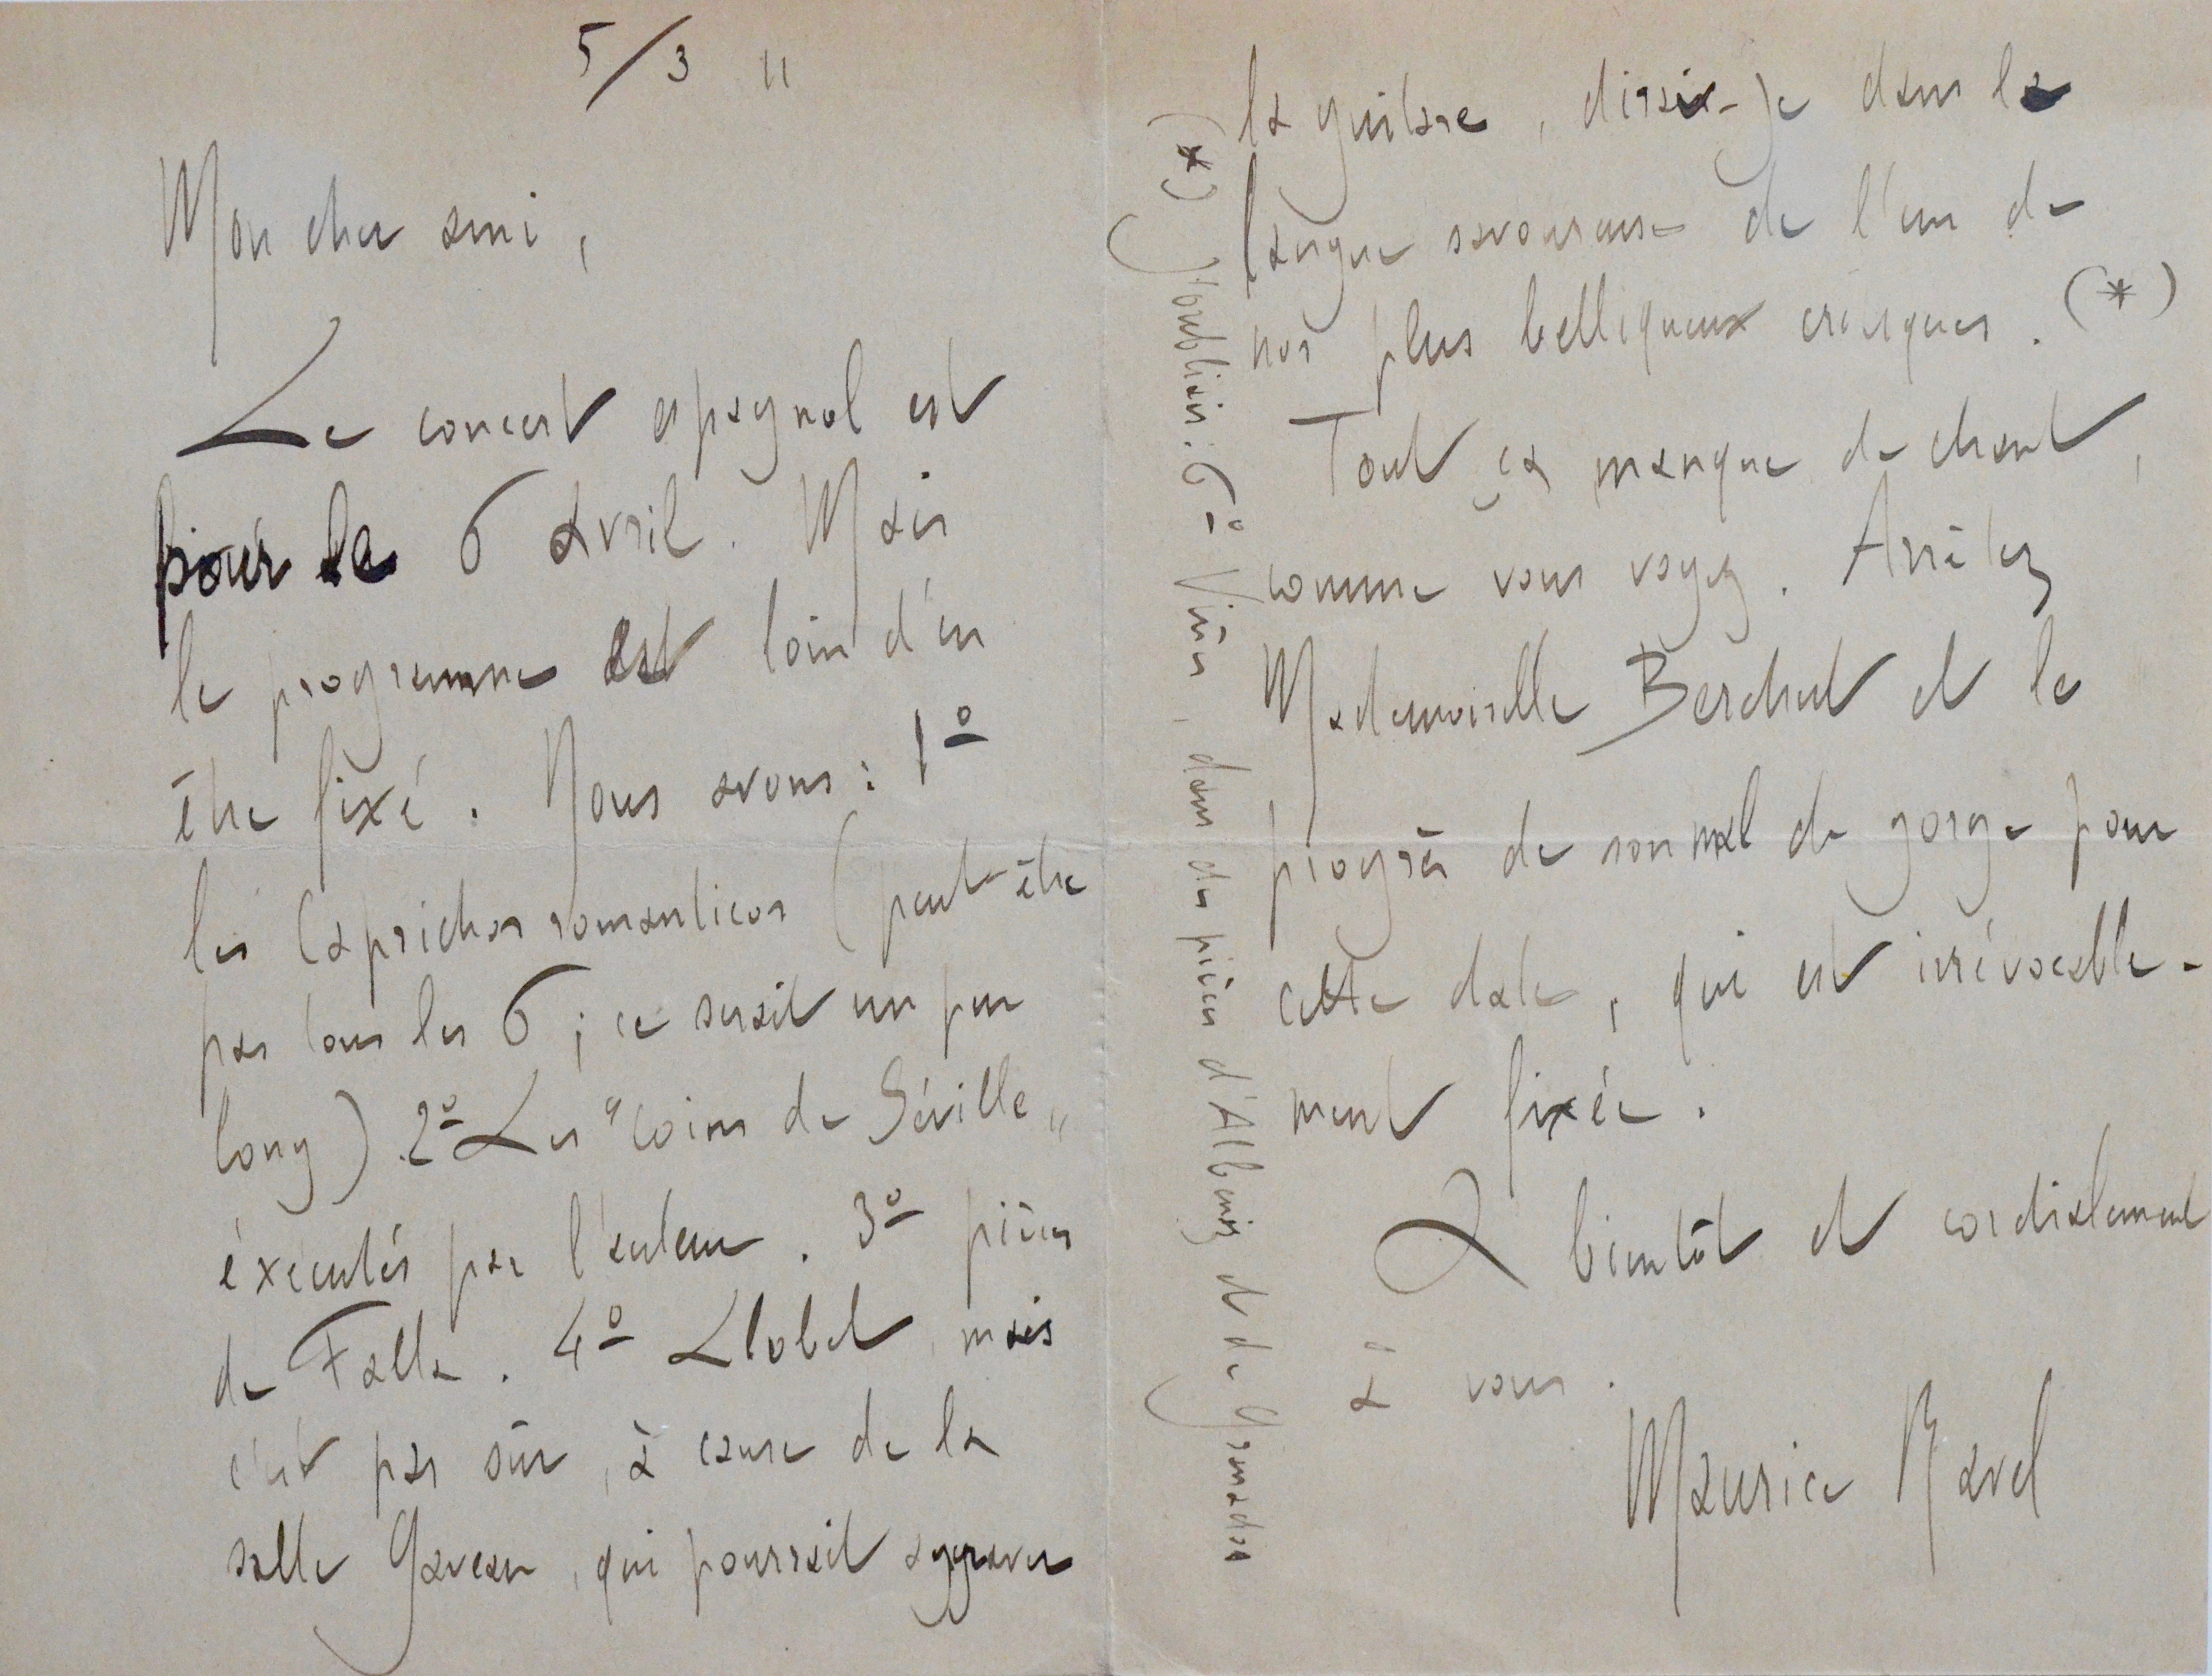 5/3 11
Mon cher ami,
Le concert espagnol est
pour le 6 avril. Mais
le programme est loin d'en
être fixé. Nous avons : 1º
les Caprichos romanticos (peut-être
pas tous les 6 ; ce serait un peu
long) 2º Les "coins de Séville"
éxécutés par l'auteur. 3º pièces
de Falla. 4º Llobet, mais
c'est pas sûr, à cause de la
salle Gaveau, qui pourrait aggraver
la guitare, dirais-je dans la
langue savoureuse de l'un de
nos plus belliqueux critiques. (*)
Tout ça manque de chant,
comme vous voyez. Arrêtez
Mademoiselle Berchut et le
progrès de son mal de gorge pour
cette date, qui est irrévocable-
ment fixée.
A bientôt et cordialement
à vous.
Maurice Ravel
(*) J'oubliais : 6º Viñes, dans des pièces d'Albeniz et de Granados